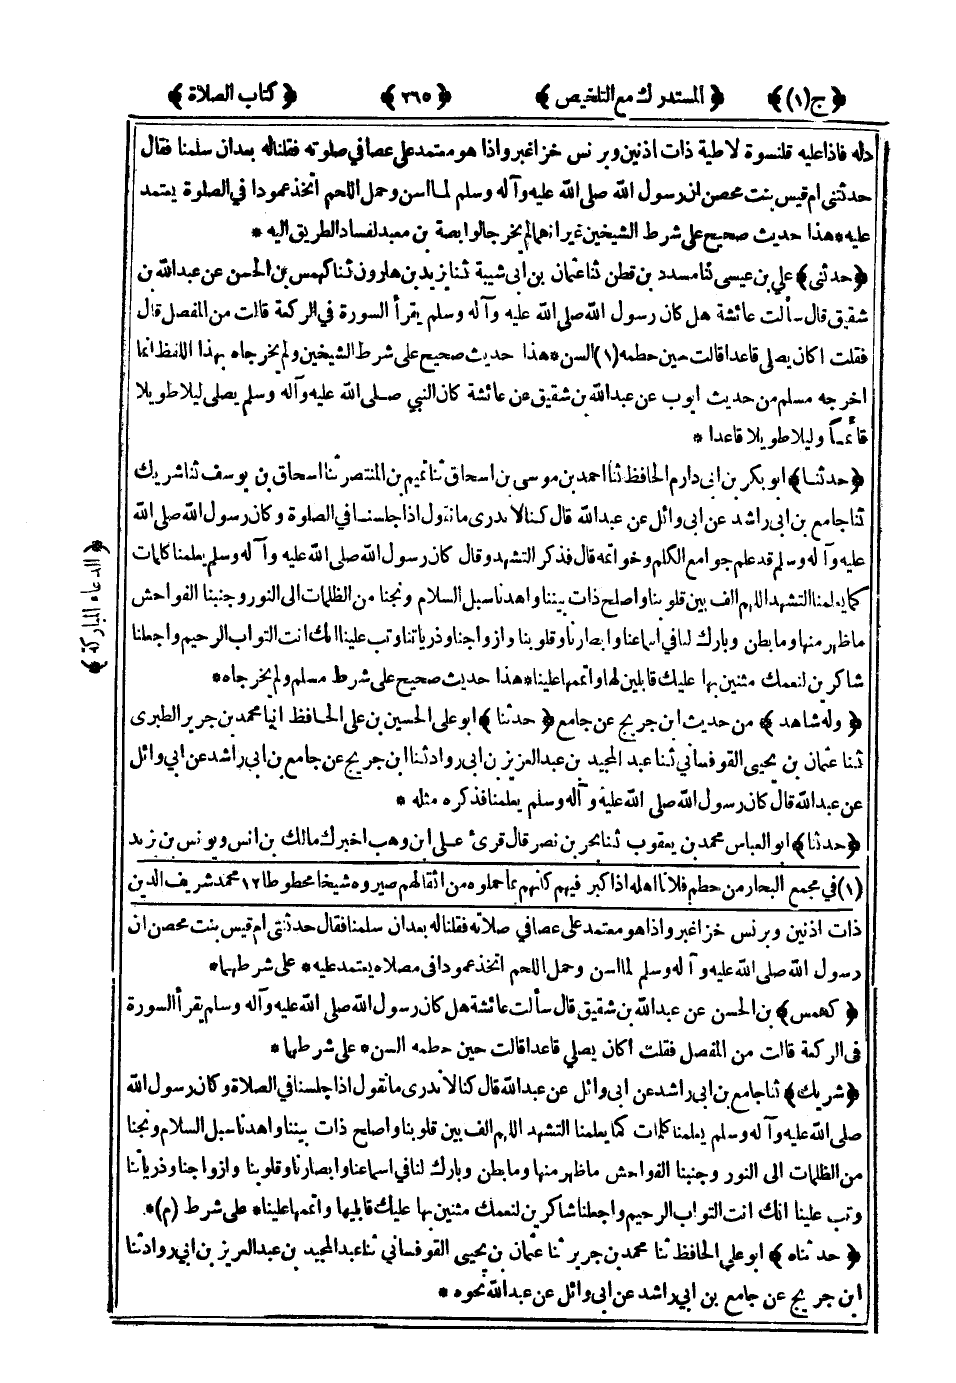 ﴿ ج (١) ﴾ ﴿ المستدرك مع التلخيص ﴾ ﴿ ٢٦٥ ﴾ ﴿ كتاب الصلاة ﴾
دله فاذا عليه قلنسوة لاطية ذات اذنين وبرنس خز اغبر واذا هو معتمد على عصا في صلوته فقلنا له بعد ان سلمنا فقال
حدثتنى ام قيس بنت محصن ان رسول الله صلى الله عليه وآله وسلم لما اسن وحمل اللحم اتخذ عمودا في الصلوة يعتمد
عليه * هذا حديث صحيح على شرط الشيخين غير انهما لم يخرجا لوابصة بن معبد لفساد الطريق اليه *
﴿ حدثنى ﴾ علي بن عيسى ثنا مسدد بن قطن ثنا عثمان بن ابى شيبة ثنا يزيد بن هارون ثنا كهمس بن الحسن عن عبد الله بن
شقيق قال سألت عائشة هل كان رسول الله صلى الله عليه وآله وسلم يقرأ السورة في الركعة قالت من المفصل قال
فقلت اكان يصلي قاعدا قالت حين حطمه (١) السن * هذا حديث صحيح على شرط الشيخين ولم يخرجاه بهذا اللفظ انما
اخرجه مسلم من حديث ايوب عن عبد الله بن شقيق عن عائشة كان النبي صلى الله عليه وآله وسلم يصلى ليلا طويلا
قائما وليلا طويلا قاعدا *
﴿ حدثنا ﴾ ابو بكر بن ابى دارم الحافظ ثنا احمد بن موسى بن اسحاق ثنا تميم بن المنتصر ثنا اسحاق بن يوسف ثنا شريك
ثنا جامع بن ابى راشد عن ابى وائل عن عبد الله قال كنا لا ندرى ما نقول اذا جلسنا في الصلوة وكان رسول الله صلى الله
عليه وآله وسلم قد علم جوامع الكلم وخواتمه قال فذكر التشهد وقال كان رسول الله صلى الله عليه وآله وسلم يعلمنا كلمات
كما يعلمنا التشهد اللهم الف بين قلوبنا واصلح ذات بيننا واهدنا سبل السلام ونجنا من الظلمات الى النور وجنبنا الفواحش
ما ظهر منها وما بطن وبارك لنا في اسماعنا وابصارنا وقلوبنا وازواجنا وذرياتنا وتب علينا انك انت التواب الرحيم واجعلنا
شاكرين لنعمك مثنين بها عليك قابلين لها واتممها علينا * هذا حديث صحيح على شرط مسلم ولم يخرجاه *
﴿ وله شاهد ﴾ من حديث ابن جريج عن جامع ﴿ حدثنا ﴾ ابو على الحسين بن على الحافظ انبا محمد بن جرير الطبرى
ثنا عثمان بن يحيى القوفساني ثنا عبد المجيد بن عبد العزيز بن ابى رواد ثنا ابن جريج عن جامع بن ابى راشد عن ابى وائل
عن عبد الله قال كان رسول الله صلى الله عليه وآله وسلم يعلمنا فذكره مثله *
﴿ حدثنا ﴾ ابو العباس محمد بن يعقوب ثنا بحر بن نصر قال قرئ على ابن وهب اخبرك مالك بن انس ويونس بن زيد
﴿ الدعاء المباركة ﴾
(١) في مجمع البحار من حطم فلانا اهله اذا كبر فيهم كانهم بما حملوه من اثقالهم صيروه شيخا محطوطا ١٢ محمد شريف الدين
ذات اذنين وبرنس خز اغبر واذا هو معتمد على عصا في صلاته فقلنا له بعد ان سلمنا فقال حدثتنى ام قيس بنت محصن ان
رسول الله صلى الله عليه وآله وسلم لما اسن وحمل اللحم اتخذ عمودا فى مصلاه يعتمد عليه * على شرطهما *
﴿ كهمس ﴾ بن الحسن عن عبد الله بن شقيق قال سألت عائشة هل كان رسول الله صلى الله عليه وآله وسلم يقرأ السورة
فى الركعة قالت من المفصل فقلت اكان يصلي قاعدا قالت حين حطمه السن * على شرطهما *
﴿ شريك ﴾ ثنا جامع بن ابى راشد عن ابى وائل عن عبد الله قال كنا لا ندرى ما نقول اذا جلسنا في الصلاة وكان رسول الله
صلى الله عليه وآله وسلم يعلمنا كلمات كما يعلمنا التشهد اللهم الف بين قلوبنا واصلح ذات بيننا واهدنا سبل السلام ونجنا
من الظلمات الى النور وجنبنا الفواحش ما ظهر منها وما بطن وبارك لنا في اسماعنا وابصارنا وقلوبنا وازواجنا وذرياتنا
وتب علينا انك انت التواب الرحيم واجعلنا شاكرين لنعمك مثنين بها عليك قابليها واتممها علينا * على شرط (م) *
﴿ حدثناه ﴾ ابو علي الحافظ ثنا محمد بن جرير ثنا عثمان بن يحيى القوفساني ثنا عبد المجيد بن عبد العزيز بن ابى رواد ثنا
ابن جريج عن جامع بن ابي راشد عن ابى وائل عن عبد الله نحوه *